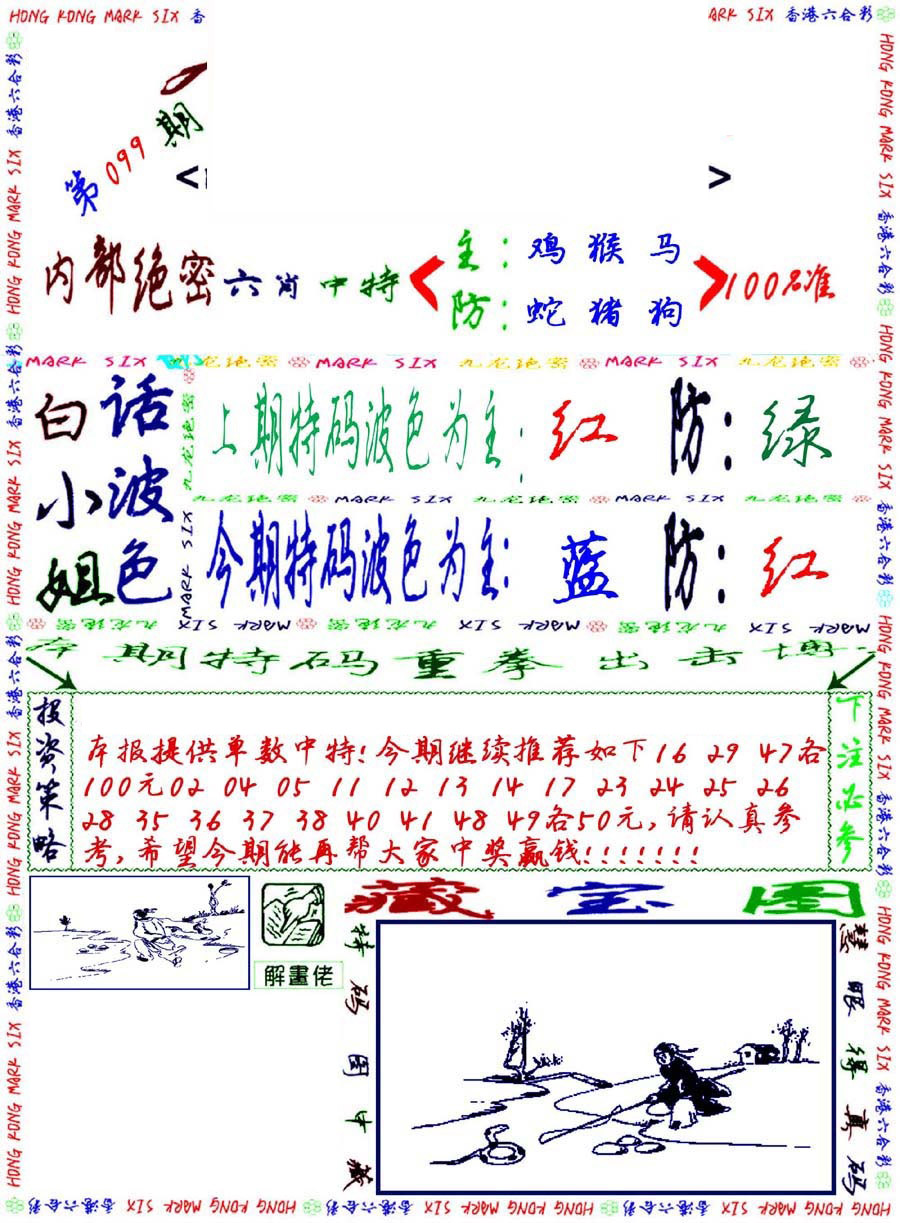 HONG KONG MARK SIX 香
ARK SIX 香港六合彩
第099期
< >
内部绝密六肖中特
主：鸡猴马
防：蛇猪狗
100%准
MARK SIX 九龙绝密 MARK SIX 九龙绝密 MARK SIX 九龙绝密
白话小波姐色
上期特码波色为主：红 防：绿
九龙绝密 MARK SIX 九龙绝密 MARK SIX 九龙绝密
今期特码波色为主：蓝 防：红
九龙绝密 MARK SIX 九龙绝密 MARK SIX 九龙绝密 MARK SIX
期特码重拳出击
投资策略
本报提供单数中特!今期继续推荐如下16 29 47各
100元02 04 05 11 12 13 14 17 23 24 25 26
28 35 36 37 38 40 41 48 49各50元,请认真参
考,希望今期能再帮大家中奖赢钱!!!!!!!
下注必参
藏宝图
解畫佬
特码图中藏
慧眼得真码
HONG KONG MARK SIX 香港六合彩